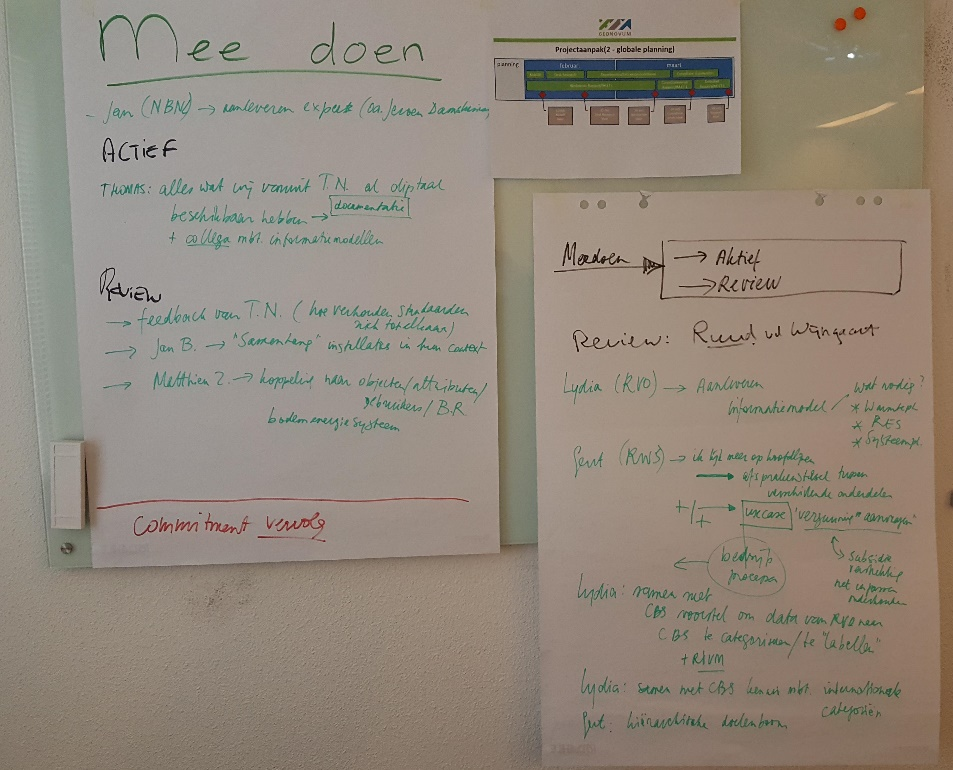 Mee doen
- Jan (NBN) → aanleveren expert (o.a. Jeroen
ACTIEF
THOMAS: alles wat wij vanuit T.N. al digitaal
beschikbaar hebben → documentatie
+ collega mbt. informatiemodellen
REVIEW
→ feedback van T.N. (hoe verhouden standaarden
zich tot elkaar)
→ Jan B. → "Samenhang" installaties in hun context
→ Matthieu Z. → koppeling naar objecten/attributen/
gebruikers/B.R
bodemenergiesysteem
Commitment vervolg
GEONOVUM
Projectaanpak(2 - globale planning)
planning
februari
maart
Meedoen → Aktief
→ Review
Review: Ruud vd
Lydia (RVO) → Aanleveren
informatiemodel
wat nodig?
* Warmtepl.
* RES
* Systeempl.
Gert (RWS) → ik kijk meer op hoofdlijnen
→ afsprakenstelsel tussen
verschillende onderdelen
+/+ → usecase "vergunning" aanvragen"
bedrijfs
processen
subsidie
net inpassen
Lydia: samen met
CBS voorstel om data van RVO naar
CBS te categoriseren/te "labellen"
+ RIVM
Lydia: samen met CBS kennis mbt. internationale
categoriën
Gert: hiërarchische doelenboom